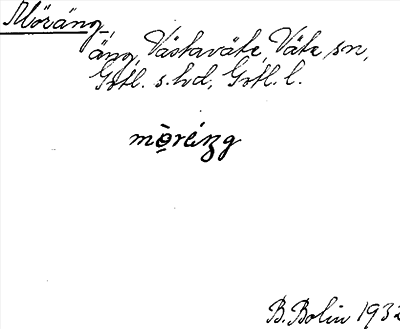 Moräng,
äng, Västaväte, Väte sn,
Gotl. s. hd, Gotl. l.
mo̤reng
B. Bolin 1932